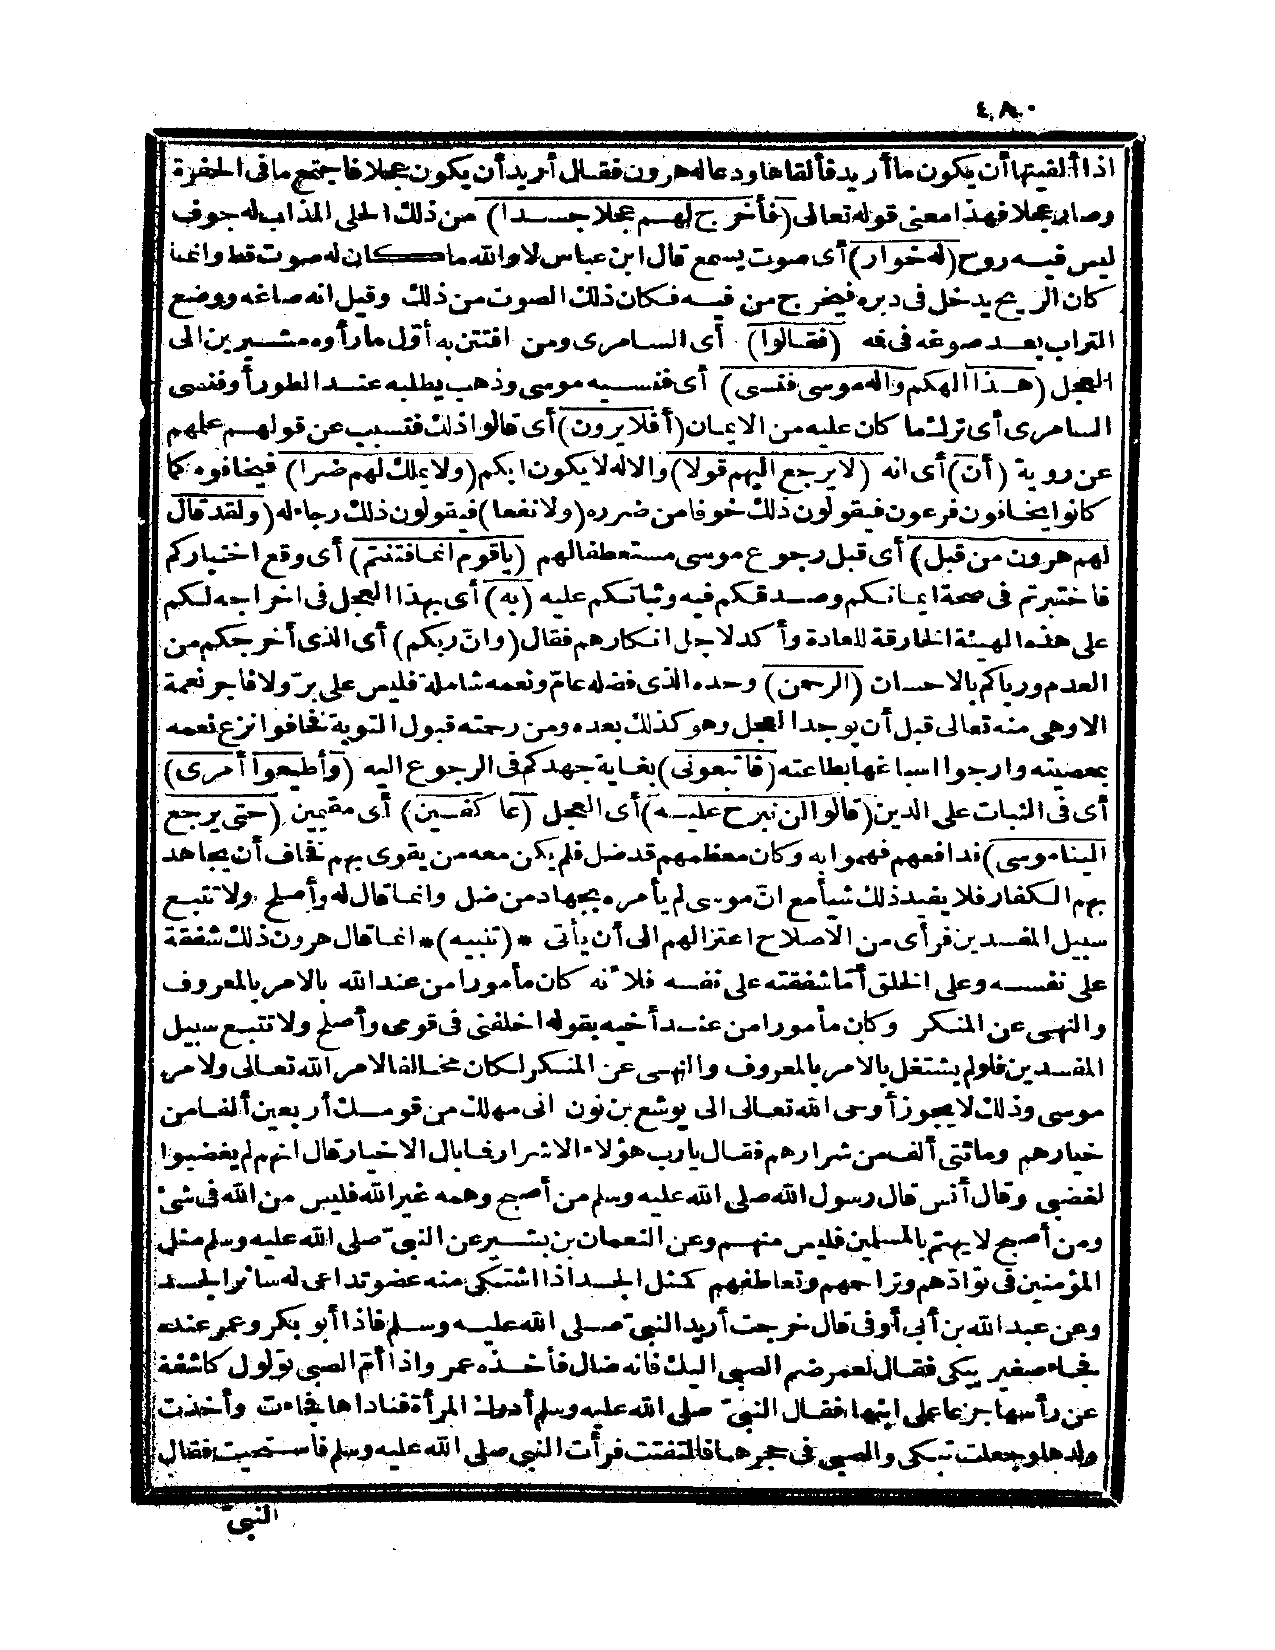 ٤٨٠
اذا ألقيتها أن يكون ما أريد فألقاها ودعا له هرون فقال أريد أن يكون عجلا فاجتمع ما فى الحفرة
وصار عجلا فهذا معنى قوله تعالى (فأخرج لهم عجلا جسدا) من ذلك الحلى المذاب له جوف
ليس فيه روح (له خوار) أى صوت يسمع قال ابن عباس لا والله ما كان له صوت قط وانما
كان الريح يدخل فى دبره فيخرج من فيه فكان ذلك الصوت من ذلك وقيل انه صاغه ووضع
التراب بعد صوغه فى فه (فقالوا) أى السامرى ومن افتتن به أول ما رأوه مشيرين الى
العجل (هذا الهكم واله موسى فنسى) أى فنسيه موسى وذهب يطلبه عند الطور أو فنسى
السامرى أى ترك ما كان عليه من الايمان (أفلا يرون) أى قالوا ذلك فتسبب عن قولهم عملهم
عن روية (أن) أى انه (لا يرجع اليهم قولا) والاله لا يكون ابكم (ولا يملك لهم ضرا) فيخافوه كما
كانوا يخافون فرعون فيقولون ذلك خوفا من ضرره (ولا نفعا) فيقولون ذلك رجاء له (ولقد قال
لهم هرون من قبل) أى قبل رجوع موسى مستعطفا لهم (ياقوم انما فتنتم) أى وقع اختباركم
فاختبرتم فى صحة ايمانكم وصدقكم فيه وثباتكم عليه (به) أى بهذا العجل فى اخراجه لكم
على هذه الهيئة الخارقة للعادة وأكد لاجل انكارهم فقال (وانّ ربكم) أى الذى أخرجكم من
العدم ورباكم بالاحسان (الرحمن) وحده الذى فضله عامّ ونعمه شاملة فليس على برّ ولا فاجر نعمة
الا وهى منه تعالى قبل أن يوجد العجل وهو كذلك بعده ومن رحمته قبول التوبة فخافوا نزع نعمه
بمعصيته وارجوا اسباغها بطاعته (فاتبعونى) بغاية جهدكم فى الرجوع اليه (وأطيعوا أمرى)
أى فى الثبات على الدين (قالوا لن نبرح عليه) أى العجل (عاكفين) أى مقيمين (حتى يرجع
الينا موسى) فدافعهم فهموا به وكان معظمهم قد ضل فلم يكن معه من يقوى بهم فخاف أن يجاهد
بهم الكفار فلا يفيد ذلك شيأ مع انّ موسى لم يأمره بجهاد من ضل وانما قال له وأصلح ولا تتبع
سبيل المفسدين فرأى من الاصلاح اعتزالهم الى أن يأتى * (تنبيه) * انما قال هرون ذلك شفقة
على نفسه وعلى الخلق أمّا شفقته على نفسه فلأنه كان مأمورا من عند الله بالامر بالمعروف
والنهى عن المنكر وكان مأمورا من عند أخيه بقوله اخلفنى فى قومى وأصلح ولا تتبع سبيل
المفسدين فلو لم يشتغل بالامر بالمعروف والنهى عن المنكر لكان مخالفا لامر الله تعالى ولامر
موسى وذلك لا يجوز أوحى الله تعالى الى يوشع بن نون انى مهلك من قومك أربعين ألفا من
خيارهم ومائتى ألف من شرارهم فقال يا رب هؤلاء الاشرار فما بال الاخيار قال انهم لم يغضبوا
لغضبى وقال أنس قال رسول الله صلى الله عليه وسلم من أصبح وهمه غير الله فليس من الله فى شئ
ومن أصبح لا يهتم بالمسلمين فليس منهم وعن النعمان بن بشير عن النبىّ صلى الله عليه وسلم مثل
المؤمنين فى توادّهم وتراحمهم وتعاطفهم كمثل الجسد اذا اشتكى منه عضو تداعى له سائر الجسد
وعن عبد الله بن أبى أوفى قال خرجت أريد النبىّ صلى الله عليه وسلم فاذا أبو بكر وعمر عنده
فجاء صغير يبكى فقال لعمر ضم الصبى اليك فانه ضال فأخذه عمر واذا أمّ الصبى تولول كاشفة
عن رأسها جزعا على ابنها فقال النبىّ صلى الله عليه وسلم أدرك المرأة فناداها فجاءت وأخذت
ولدها وجعلت تبكى والصبى فى حجرها فالتفتت فرأت النبى صلى الله عليه وسلم فاستحيت فقال
النبىّ